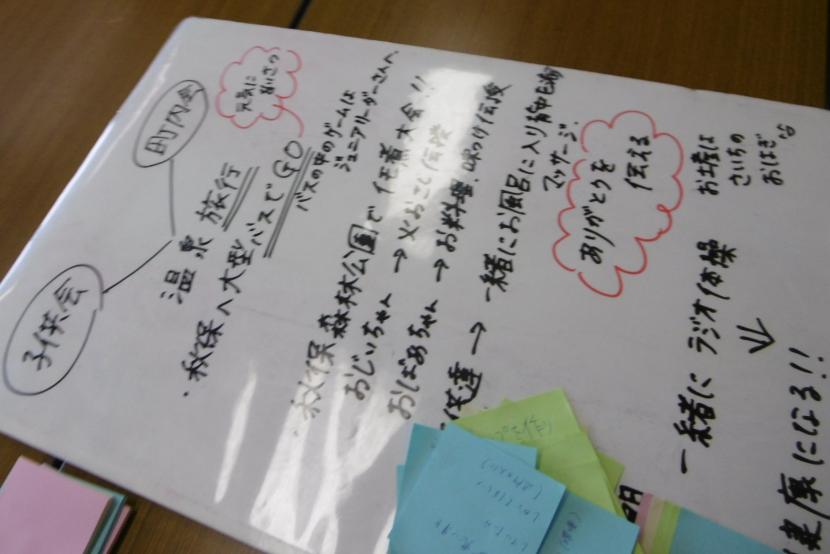 子供会
町内会
元気に
あいさつ
温泉旅行
・秋保へ大型バスでGO
バスの中のゲームは
ジュニアリーダーさんが、
・秋保森林公園で 仮装大会!!
おじいちゃん → 火おこし伝授
おばあちゃん → お料理、味つけ伝授
供達 → 一緒にお風呂に入り背中
マッサージ.
ありがとうを
伝える
お土産は
さいちの
おはぎ
一緒に ラジオ体操
↓
健康になる!!